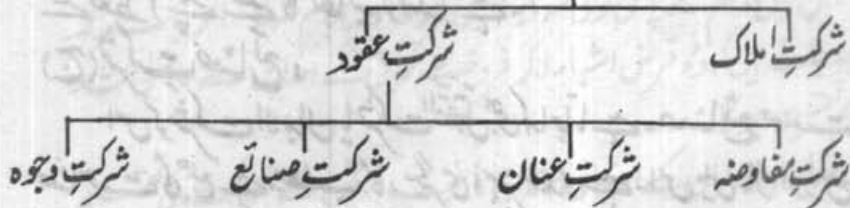 شرکتِ املاک شرکتِ عقود
شرکتِ مفاوضہ شرکتِ عنان شرکتِ صنائع شرکتِ وجوہ